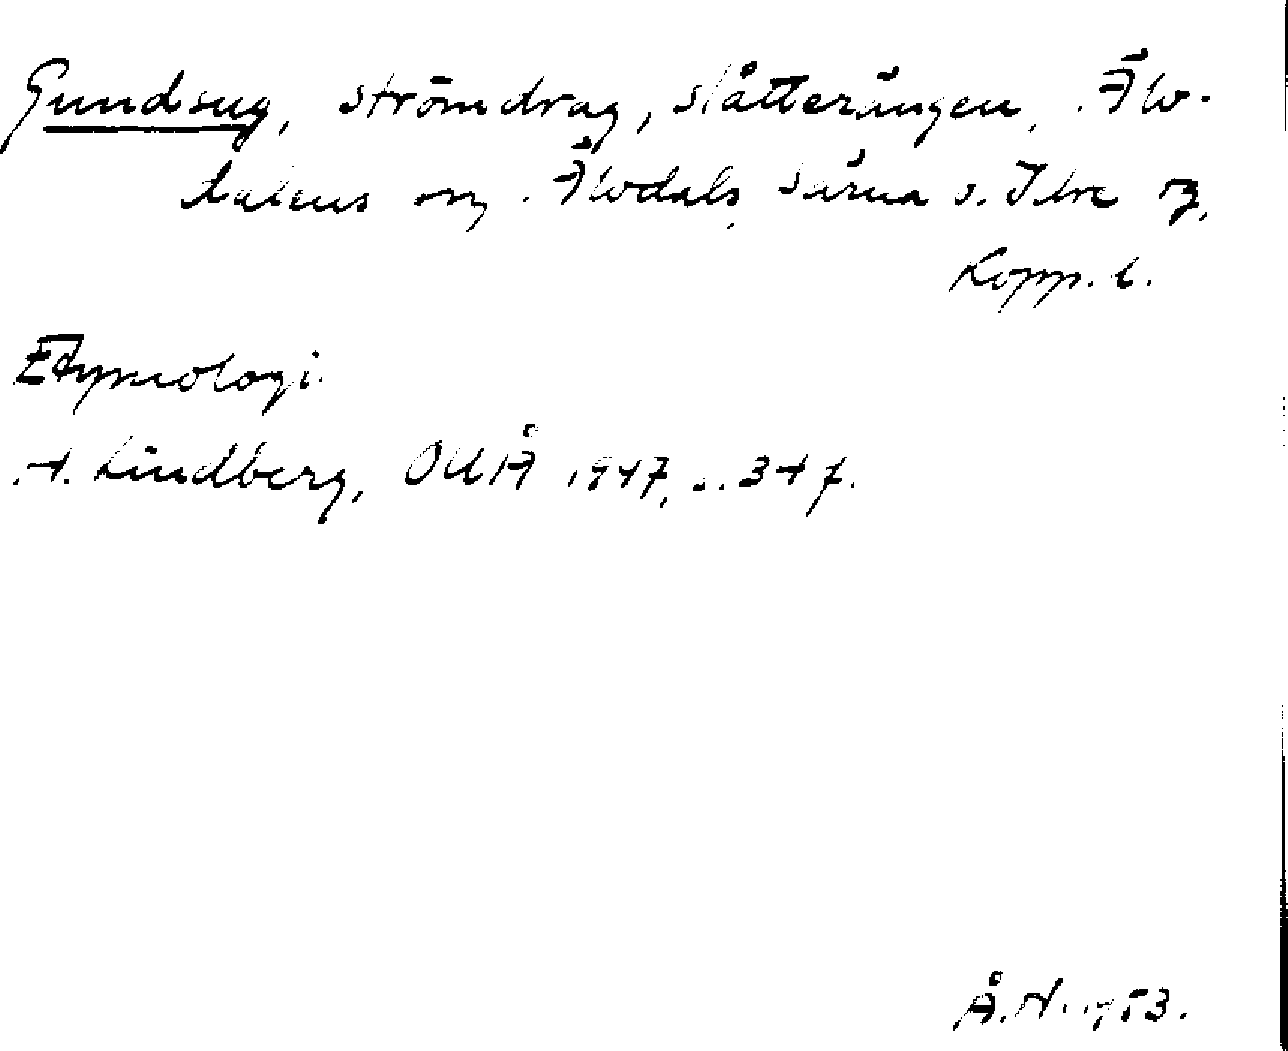 Gundsug, strömdrag, slåtterängen, Älv-
dalens sn, Älvdals, Särna o. Idre tg,
Kopp. l.
Etymologi.
A. Lindberg, OUÅ 1947, s. 34 f.
Å. N. 1953.